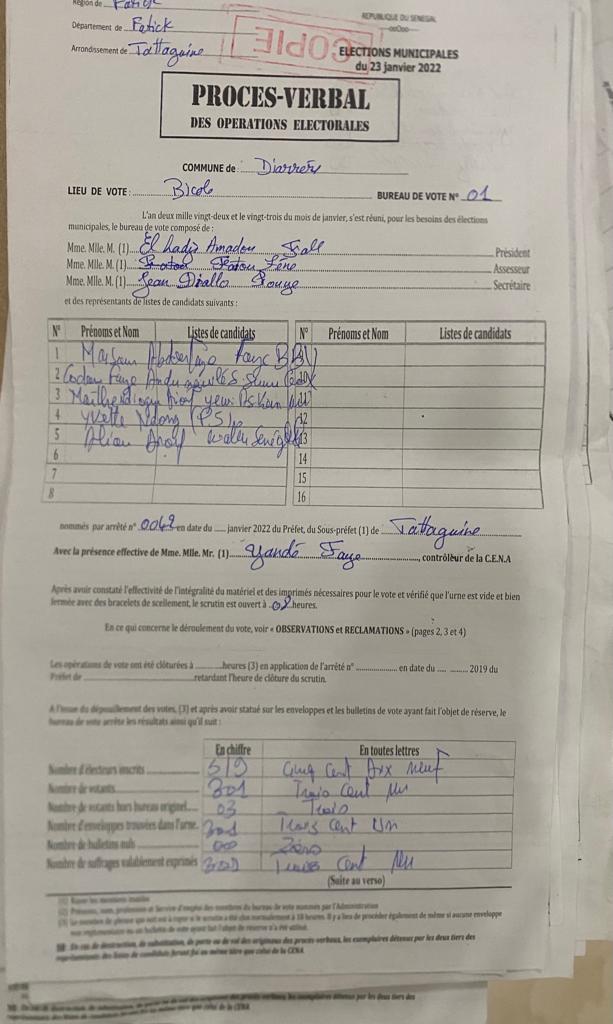 Région de Fatick
REPUBLIQUE DU SENEGAL
Département de Fatick
COPIE
Arrondissement de Tattaguine
ELECTIONS MUNICIPALES
du 23 janvier 2022
PROCES-VERBAL
DES OPERATIONS ELECTORALES
COMMUNE de : Diarrère
LIEU DE VOTE : Bicole BUREAU DE VOTE N° 01
L'an deux mille vingt-deux et le vingt-trois du mois de janvier, s'est réuni, pour les besoins des élections
municipales, le bureau de vote composé de :
Mme. Mlle. M. (1) El hadji Amadou Fall Président
Mme. Mlle. M. (1) Fatou Sène Assesseur
Mme. Mlle. M. (1) Jean Diallo Secrétaire
et des représentants de listes de candidats suivants :
N° Prénoms et Nom Listes de candidats N° Prénoms et Nom Listes de candidats
1 Faye BBY
2 Faye
3 yewi Askan
4 Yvette Ndong (PS) 12
5 Aliou Diouf wallu Sénégal 13
6 14
7 15
8 16
nommés par arrêté n° 0042 en date du janvier 2022 du Préfet, du Sous-préfet (1) de Tattaguine
Avec la présence effective de Mme. Mlle. Mr. (1) Yandé Faye, contrôleur de la C.E.N.A
Après avoir constaté l'effectivité de l'intégralité du matériel et des imprimés nécessaires pour le vote et vérifié que l'urne est vide et bien
fermée avec des bracelets de scellement, le scrutin est ouvert à 08 heures.
En ce qui concerne le déroulement du vote, voir « OBSERVATIONS et RECLAMATIONS » (pages 2, 3 et 4)
Les opérations de vote ont été clôturées à heures (3) en application de l'arrêté n° en date du 2019 du
Préfet de retardant l'heure de clôture du scrutin.
A l'issue du dépouillement des votes, (3) et après avoir statué sur les enveloppes et les bulletins de vote ayant fait l'objet de réserve, le
bureau de vote arrête les résultats ainsi qu'il suit :
En chiffre En toutes lettres
Nombre d'électeurs inscrits 519 Cinq Cent Dix Neuf
Nombre de votants 301 Trois Cent Un
Nombre de votants hors bureau originel 03 Trois
Nombre d'enveloppes trouvées dans l'urne 301 Trois Cent Un
Nombre de bulletins nuls 00 Zéro
Nombre de suffrages valablement exprimés Trois Cent Un
(Suite au verso)
(1) Rayer les mentions inutiles
(2) Prénoms, nom, profession et Service d'emploi des membres du bureau de vote nommés par l'Administration